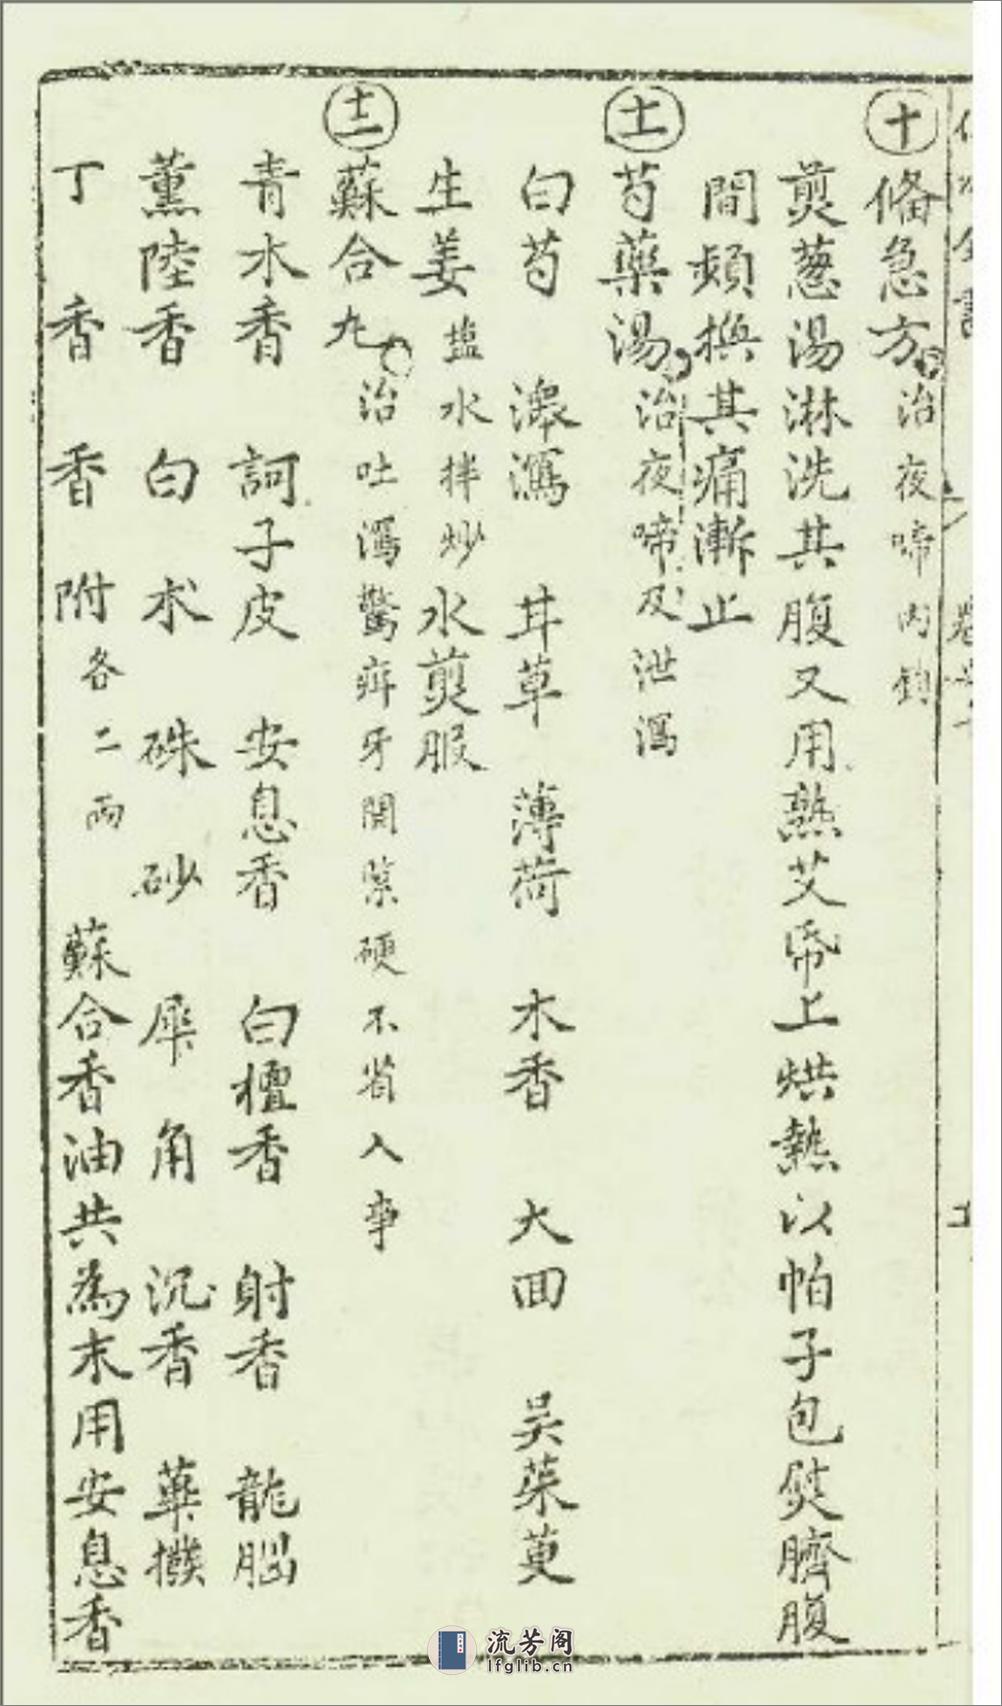 十
俻急方 治夜啼内釣
煎葱湯淋洗其腹又用熟艾帋上烘熱以帕子包熨臍腹
間頻換其痛漸止
十一
芍藥湯 治夜啼及泄瀉
白芍 澤瀉 甘草 薄荷 木香 大回 吴茱萸
生姜 盐水拌炒 水煎服
十二
蘇合丸 治吐瀉驚疳牙関緊硬不省人事
青木香 訶子皮 安息香 白檀香 射香 龍腦
薰陸香 白朮 硃砂 犀角 沉香 蓽撥
丁香 香附 各二両 蘇合香油共為末用安息香
流芳阁
lfglib.cn